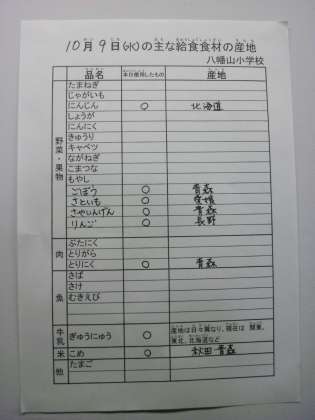 10月9日(水)の主な給食食材の産地
八幡山小学校
品名 本日使用したもの 産地
野菜・果物
たまねぎ
じゃがいも
にんじん ○ 北海道
しょうが
にんにく
きゅうり
キャベツ
ながねぎ
こまつな
もやし
ごぼう ○ 青森
さといも ○ 愛媛
さやいんげん ○ 青森
りんご ○ 長野
肉
ぶたにく
とりがら
とりにく ○ 青森
魚
さば
さけ
むきえび
牛乳 ぎゅうにゅう ○ 産地は日々異なり、現在は 関東、
東北、北海道など
米 こめ ○ 秋田 青森
他 たまご